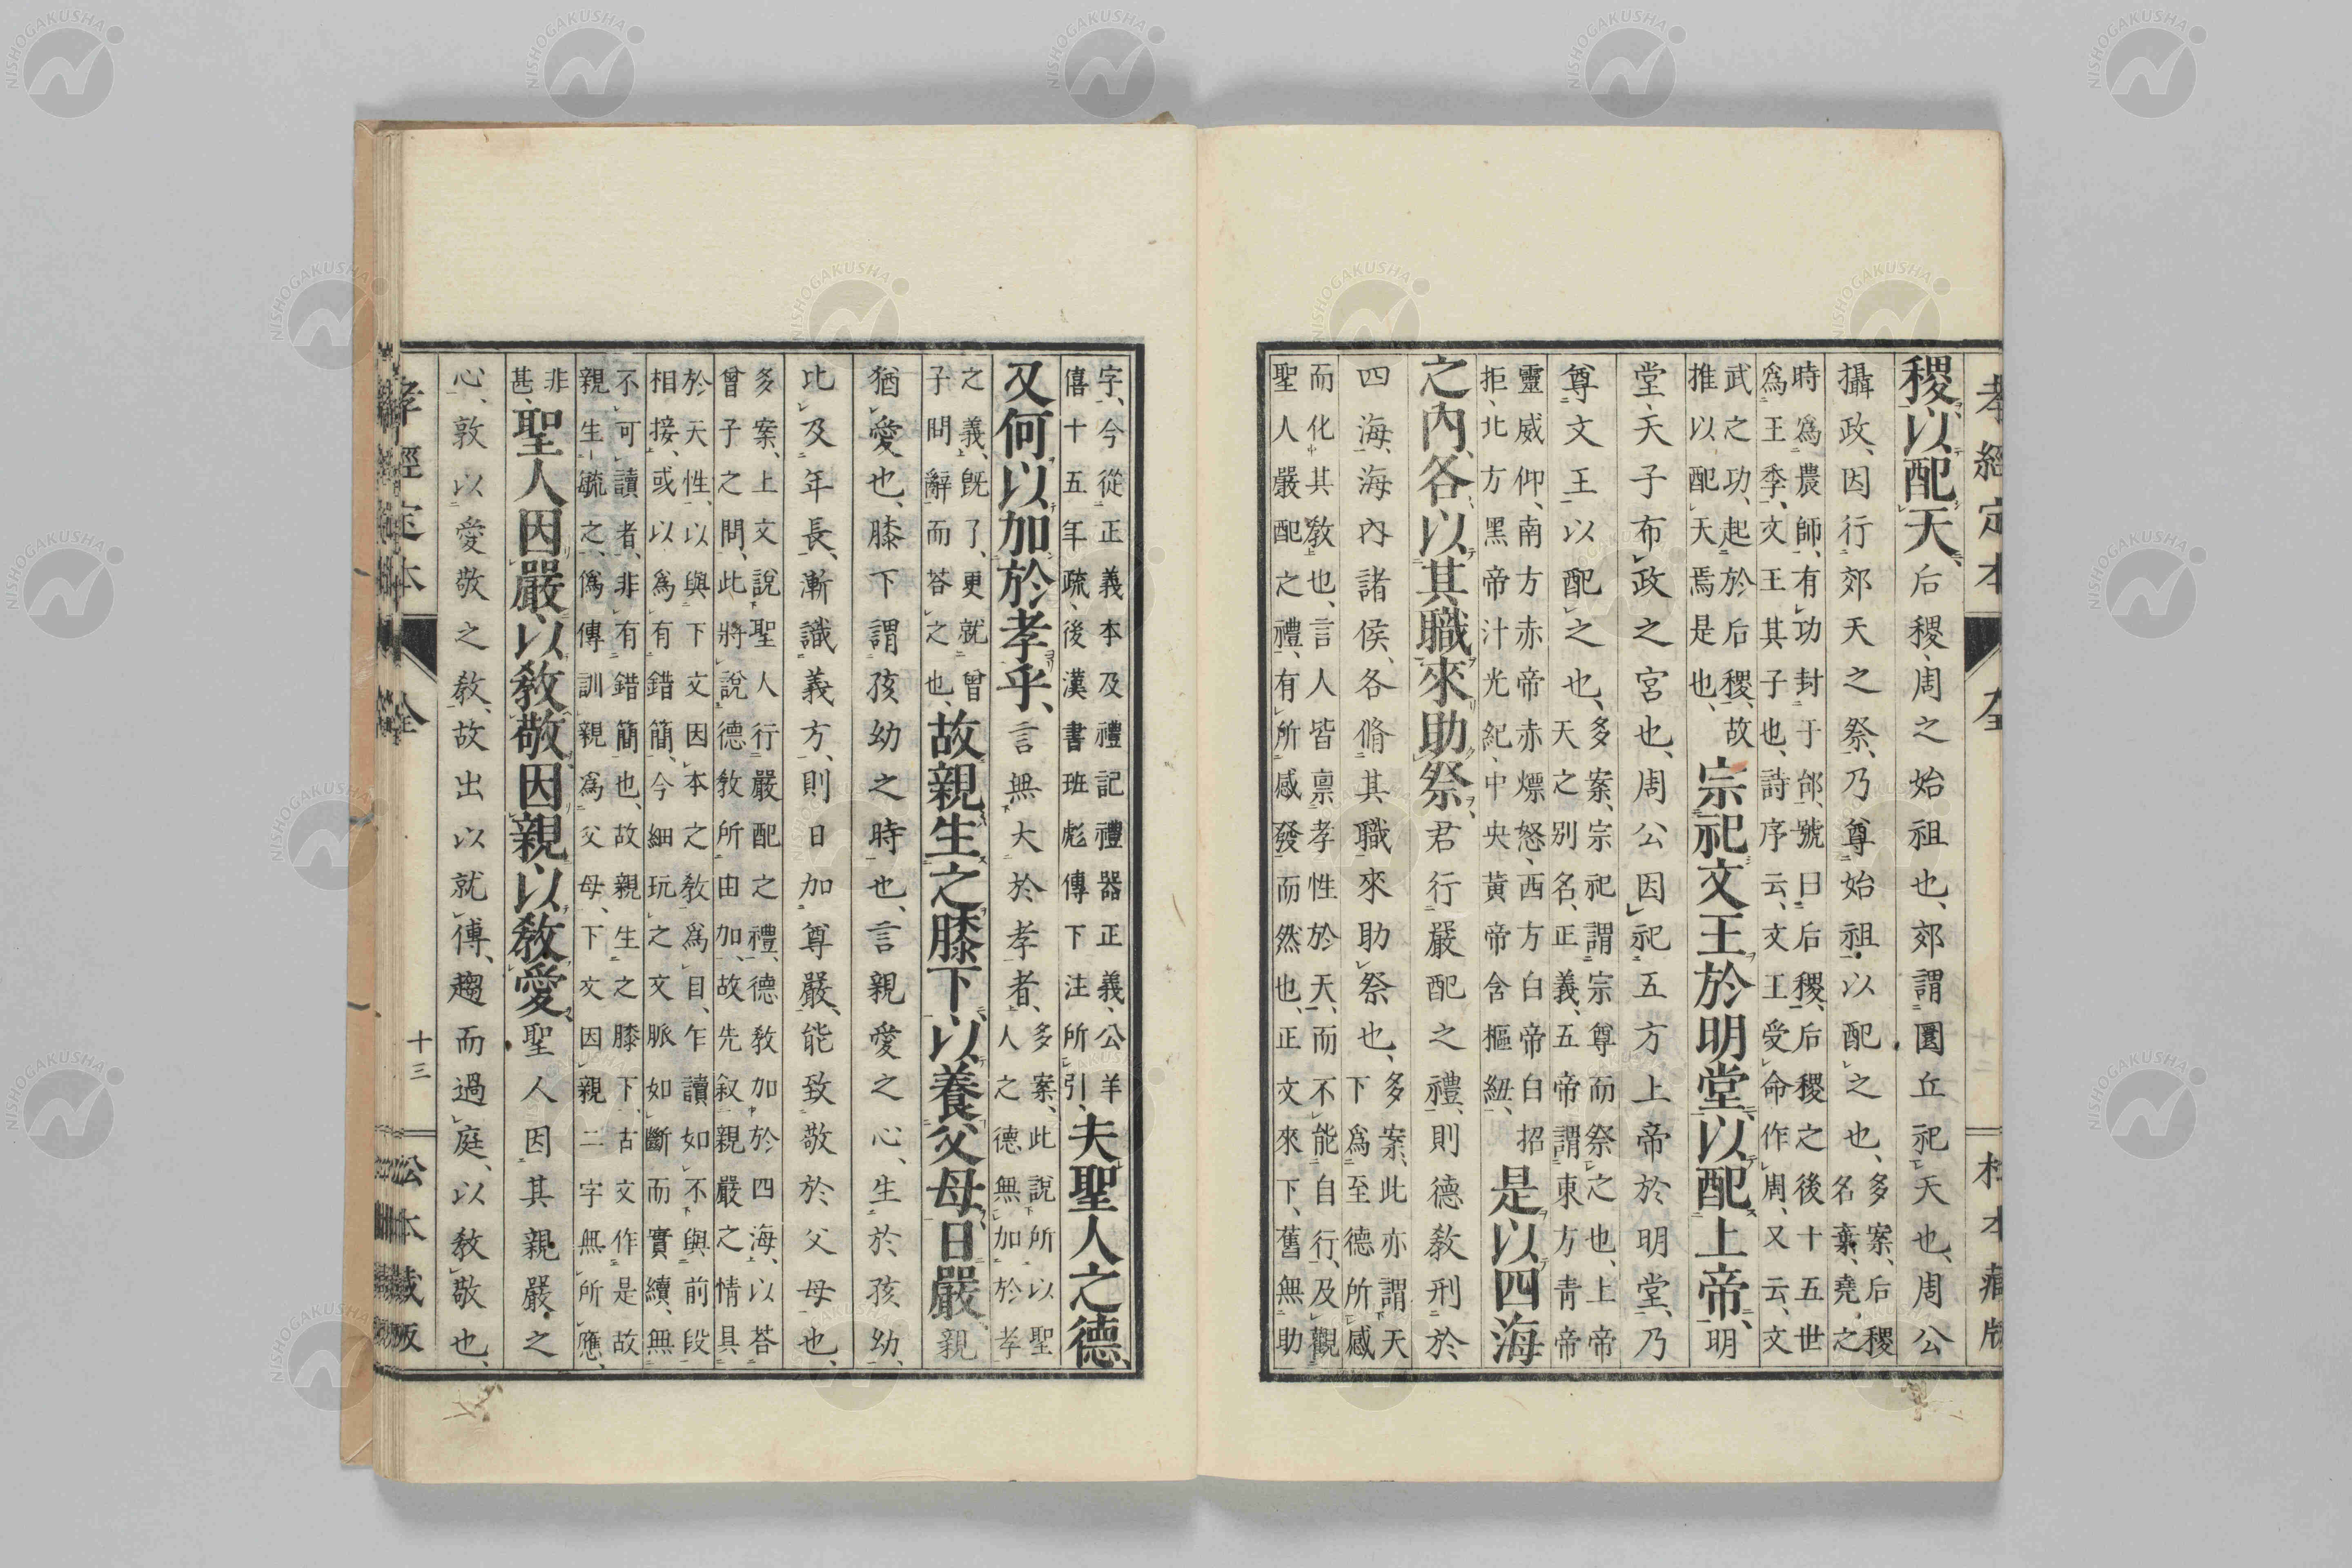 孝經定本 全 十二 松本藏版
稷以配天、后稷、周之始祖也、郊謂圜丘祀天也、周公
攝政、因行郊天之祭、乃尊始祖以配之也、
多案、后稷
名棄、堯之
時爲農師、有功封于邰、號曰后稷、后稷之後十五世
爲王季、文王其子也、詩序云、文王受命作周、又云、文
武之功、起於后稷、故
推以配天焉是也、
宗祀文王於明堂、以配上帝、明
堂、天子布政之宮也、周公因祀五方上帝於明堂、乃
尊文王以配之也、
多案、宗祀謂宗尊而祭之也、上帝
天之別名、正義、五帝謂東方靑帝
靈威仰、南方赤帝赤熛怒、西方白帝白招
拒、北方黑帝汁光紀、中央黃帝含樞紐、
是以四海
之內、各以其職來助祭、君行嚴配之禮、則德敎刑於
四海、海內諸侯、各脩其職來助祭也、
多案、此亦謂天
下爲至德所感
而化其敎也、言人皆禀孝性於天、而不能自行、及觀
聖人嚴配之禮、有所感發而然也、正文來下、舊無助
字、今從正義本及禮記禮器正義、公羊
僖十五年疏、後漢書班彪傳下注所引、
夫聖人之德、
又何以加於孝乎、言無大於孝者、
多案、此說所以聖
人之德、無加於孝
之義、旣了、更就曾
子問辭而荅之也、
故親生之膝下、以養父母日嚴、親
猶愛也、膝下謂孩幼之時也、言親愛之心、生於孩幼、
比及年長、漸識義方、則日加尊嚴、能致敬於父母也、
多案、上文說聖人行嚴配之禮、德敎加於四海、以荅
曾子之問、此將說德敎所由加、故先叙親嚴之情具
於天性、以與下文因本之敎爲目、乍讀如不與前段
相接、或以爲有錯簡、今細玩之文脈如斷而實續、無
不可讀者、非有錯簡也、故親生之膝下、古文作是故
親生毓之、爲傳訓親爲父母、下文因親二字無所應、
非
甚、
聖人因嚴以敎敬、因親以敎愛、聖人因其親嚴之
心、敦以愛敬之敎、故出以就傅、趨而過庭、以敎敬也、
孝經定本 全 十三 松本藏版
NISHOGAKUSHA